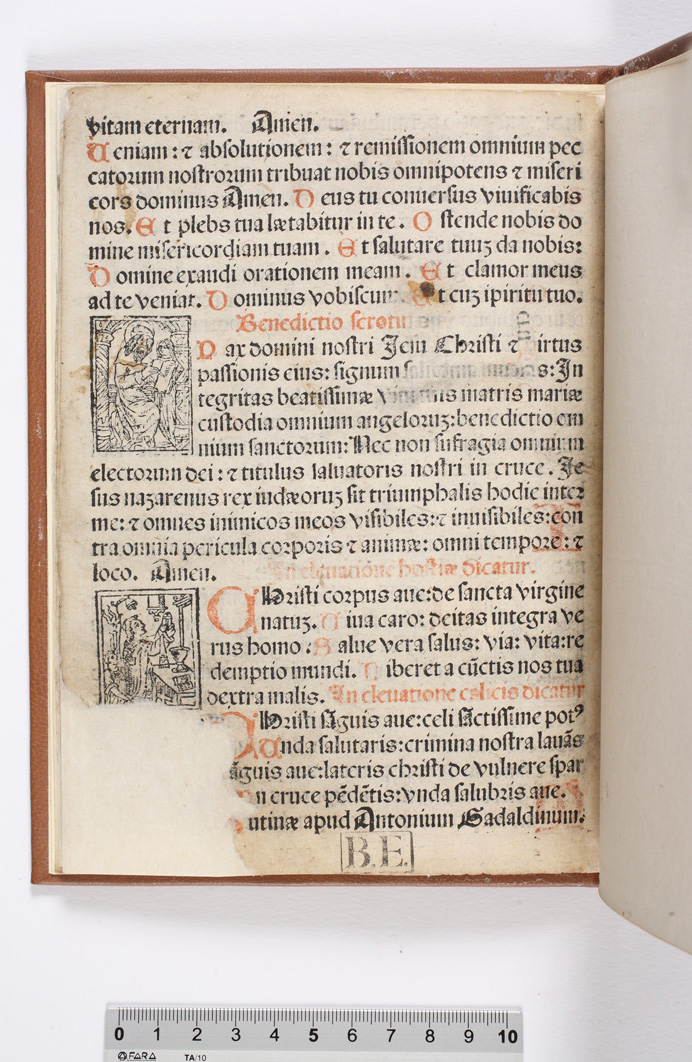 vitam eternam. Amen.
Ueniam: ⁊ absolutionem: ⁊ remissionem omnium pec
catorum nostrorum tribuat nobis omnipotens ⁊ miseri
cors dominus Amen. Deus tu conuersus viuificabis
nos. Et plebs tua lætabitur in te. Ostende nobis do
mine misericordiam tuam. Et salutare tuuʒ da nobis:
Domine exaudi orationem meam. Et clamor meus
ad te veniat. Dominus vobiscum. Et cuʒ ipiritu tuo.
Benedictio
Pax domini nostri Jesu Christi ⁊ virtus
passionis eius: signum :In
tegritas beatissimæ matris mariæ
custodia omnium angeloruʒ: benedictio om
nium sanctorum: Nec non sufragia omnium
electorum dei: ⁊ titulus saluatoris nostri in cruce. Je
sus naʒarenus rex iudæoruʒ sit triumphalis hodie inter
me: ⁊ omnes inimicos meos visibiles: ⁊ inuisibiles: con
tra omnia pericula corporis ⁊ animæ: omni tempore: ⁊
loco. Amen. In eleuatione hostiæ dicatur.
Christi corpus aue: de sancta virgine
natuʒ. Uiua caro: deitas integra ve
rus homo. Salue vera salus: via: vita: re
demptio mundi. Liberet a cūctis nos tua
dextra malis. In eleuatione calicis dicatur
Christi sāguis aue: celi sāctissime potꝰ
Unda salutaris: crimina nostra lauās
āguis aue: lateris christi de vulnere spar
n cruce pēdētis: vnda salubris aue.
utinæ apud Antonium Gadaldinum.
B.E.
0 1 2 3 4 5 6 7 8 9 10
FARA TA/10